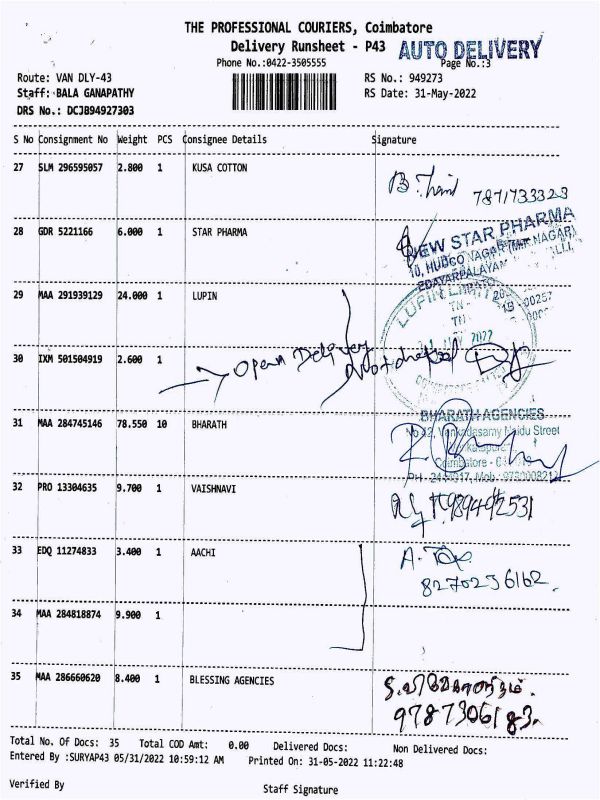 THE PROFESSIONAL COURIERS, Coimbatore
Delivery Runsheet - P43 AUTO DELIVERY
Phone No.:0422-3505555 Page No.:3
Route: VAN DLY-43 RS No.: 949273
Staff: BALA GANAPATHY RS Date: 31-May-2022
DRS No.: DCJB94927303
S No Consignment No Weight PCS Consignee Details Signature
27 SLM 296595057 2.800 1 KUSA COTTON
7871733323
28 GDR 5221166 6.000 1 STAR PHARMA
NEW STAR PHARMA
10, HUDCO NAGAR (M.K.NAGAR)
EDAYARPALAYAM
29 MAA 291939129 24.000 1 LUPIN
LUPIN LIMITED
2022
30 IXM 501504919 2.600 1
Open Delivery Not checked
31 MAA 284745146 78.550 10 BHARATH
BHARATH AGENCIES
Venkadasamy Naidu Street
Coimbatore
32 PRO 13304635 9.700 1 VAISHNAVI
33 EDQ 11274833 3.400 1 AACHI
8270236162.
34 MAA 284818874 9.900 1
35 MAA 286660620 8.400 1 BLESSING AGENCIES
9787306183.
Total No. Of Docs: 35 Total COD Amt: 0.00 Delivered Docs: Non Delivered Docs:
Entered By :SURYAP43 05/31/2022 10:59:12 AM Printed On: 31-05-2022 11:22:48
Verified By Staff Signature